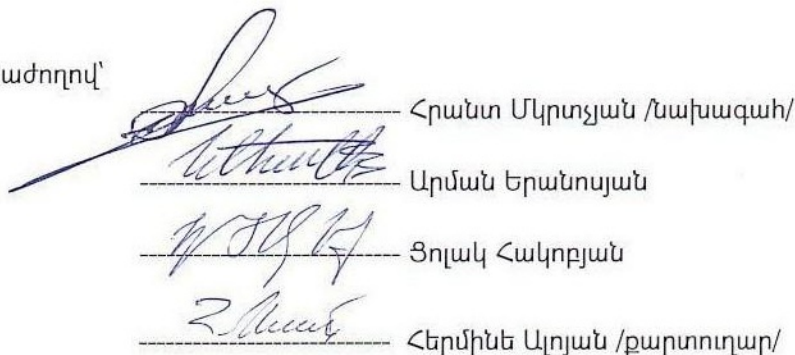 աժողով՝
Հրանտ Մկրտչյան /նախագահ/
Արման Երանոսյան
Ցոլակ Հակոբյան
Հերմինե Ալոյան /քարտուղար/